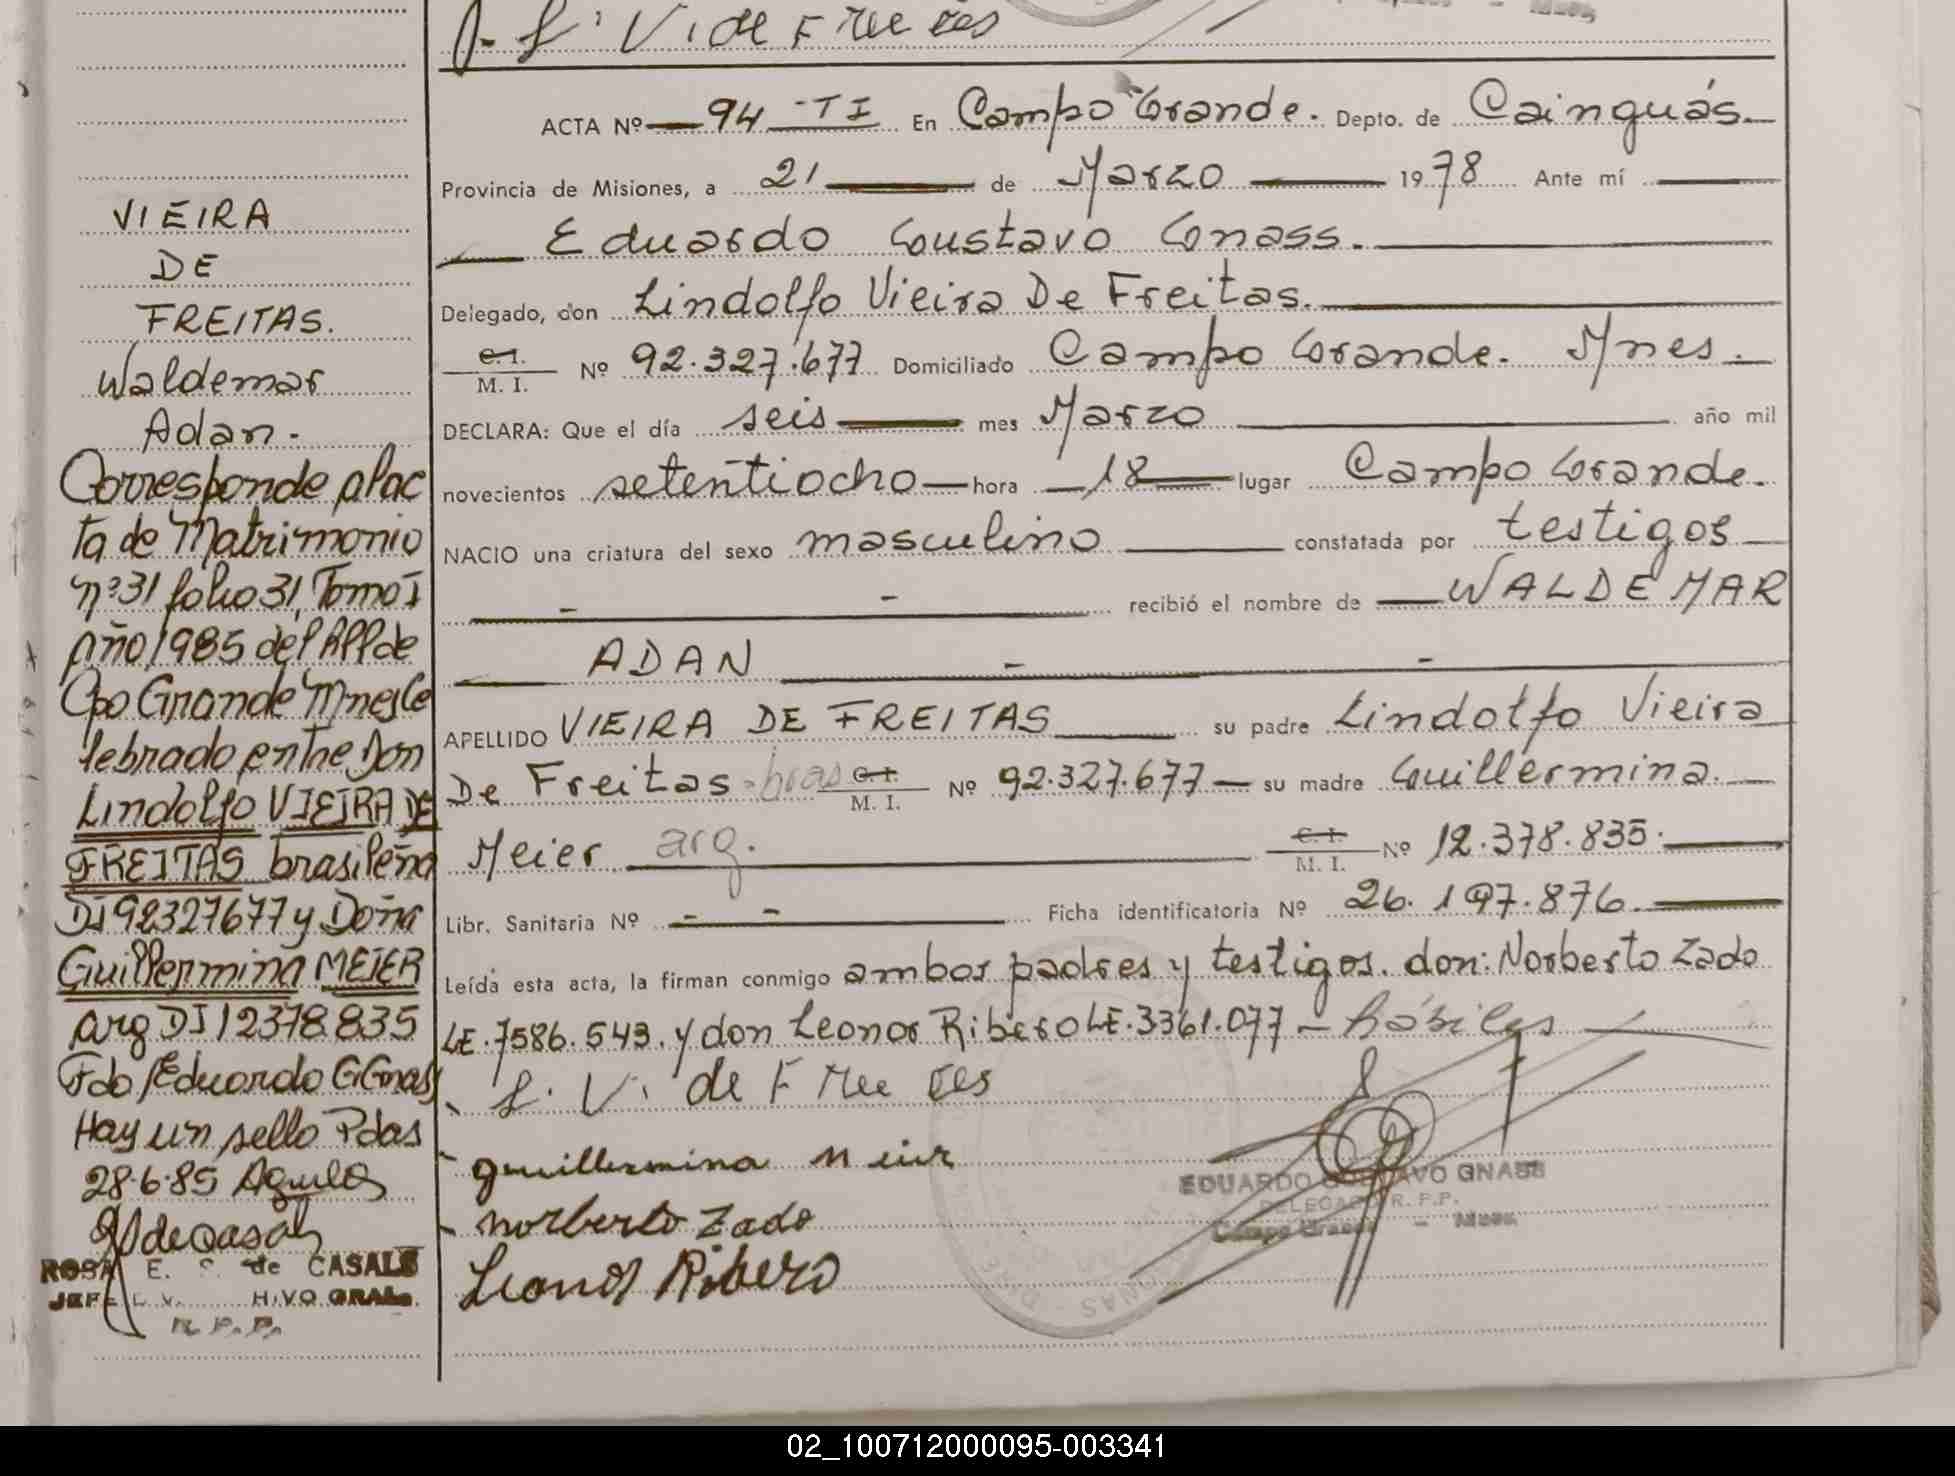 L. V. de Freitas
ACTA Nº 94 - TI En Campo Grande. Depto. de Cainguás.
Provincia de Misiones, a 21 de Marzo 1978 Ante mí
Eduardo Gustavo Gnass.
Delegado, don Lindolfo Vieira De Freitas.
C. I.
M. I. Nº 92.327.677 Domiciliado Campo Grande. Mnes.
DECLARA: Que el día seis mes Marzo año mil
novecientos setentiocho hora 18 lugar Campo Grande.
NACIO una criatura del sexo masculino constatada por testigos
recibió el nombre de WALDEMAR
ADAN
APELLIDO VIEIRA DE FREITAS su padre Lindolfo Vieira
De Freitas - bras C. I. M. I. Nº 92.327.677 su madre Guillermina
Meier arg. C. I. M. I. Nº 12.378.835.
Libr. Sanitaria Nº - - Ficha identificatoria Nº 26.197.876.
Leída esta acta, la firman conmigo ambos padres y testigos. don: Norberto Zado
LE. 7586.543. y don Leonor Ribero LE. 3361.077 - hábiles
L. V. de Freitas
guillermina Meier
norberto Zado
Leonor Ribero
EDUARDO GUSTAVO GNASS
DELEGADO R. P. P.
Campo Grande - Mnes.
VIEIRA
DE
FREITAS.
Waldemar
Adan.
Corresponde al ac
ta de Matrimonio
nº 31 folio 31, Tomo I
Año 1985 del RPP de
Cpo Grande Mnes Ce
lebrado entre Don
Lindolfo VIEIRA DE
FREITAS brasileña
DI 92327677 y Doña
Guillermina MEIER
arg DI 12378.835
Fdo/Eduardo G Gnass
Hay un sello Pdas
28.6.85
de Casals
ROSA E. de CASALS
JEFE HIVO GRAL.
R. P. P.
02_100712000095-003341